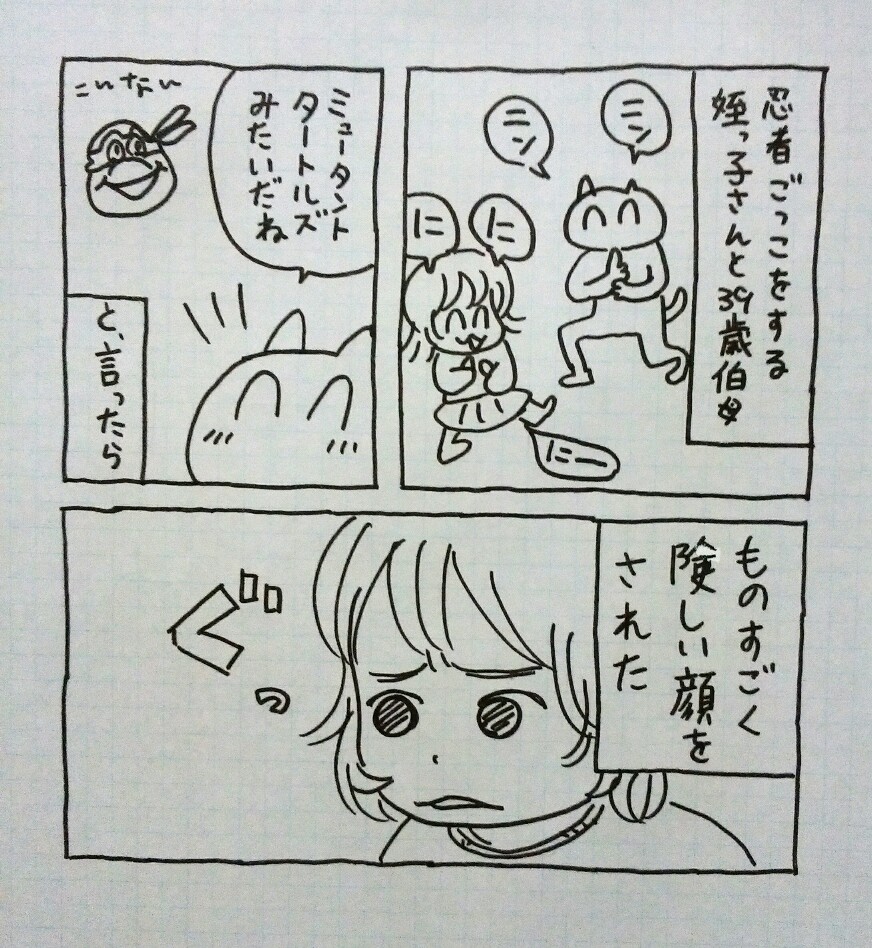 忍者ごっこをする
姪っ子さんと39歳伯母
ニン
ニン
に
に
にー
ミュータント
タートルズ
みたいだね
こいなぃ
と、言ったら
ものすごく
険しい顔を
された
ぐっ